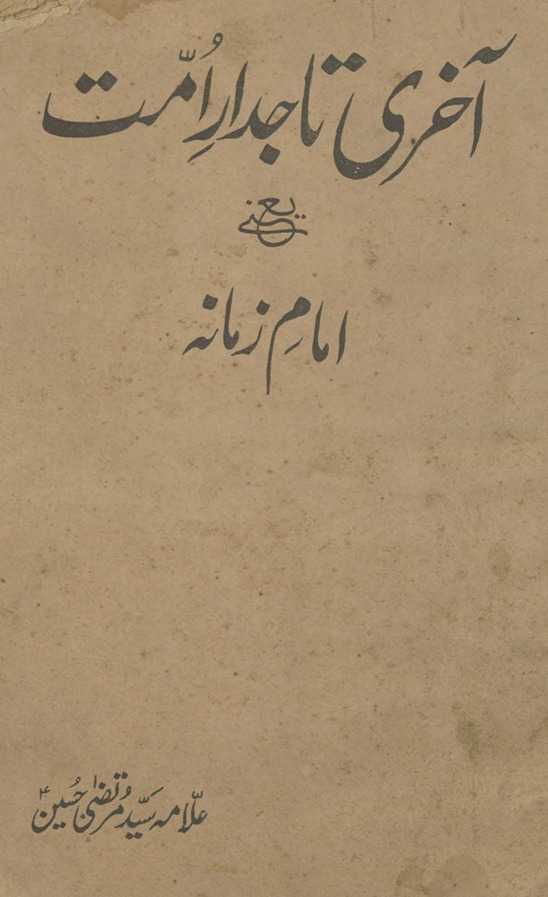 آخری تاجدارِ اُمّت
یعنی
امامِ زمانہ
علّامہ سَیّد مُرتضیٰ حُسین